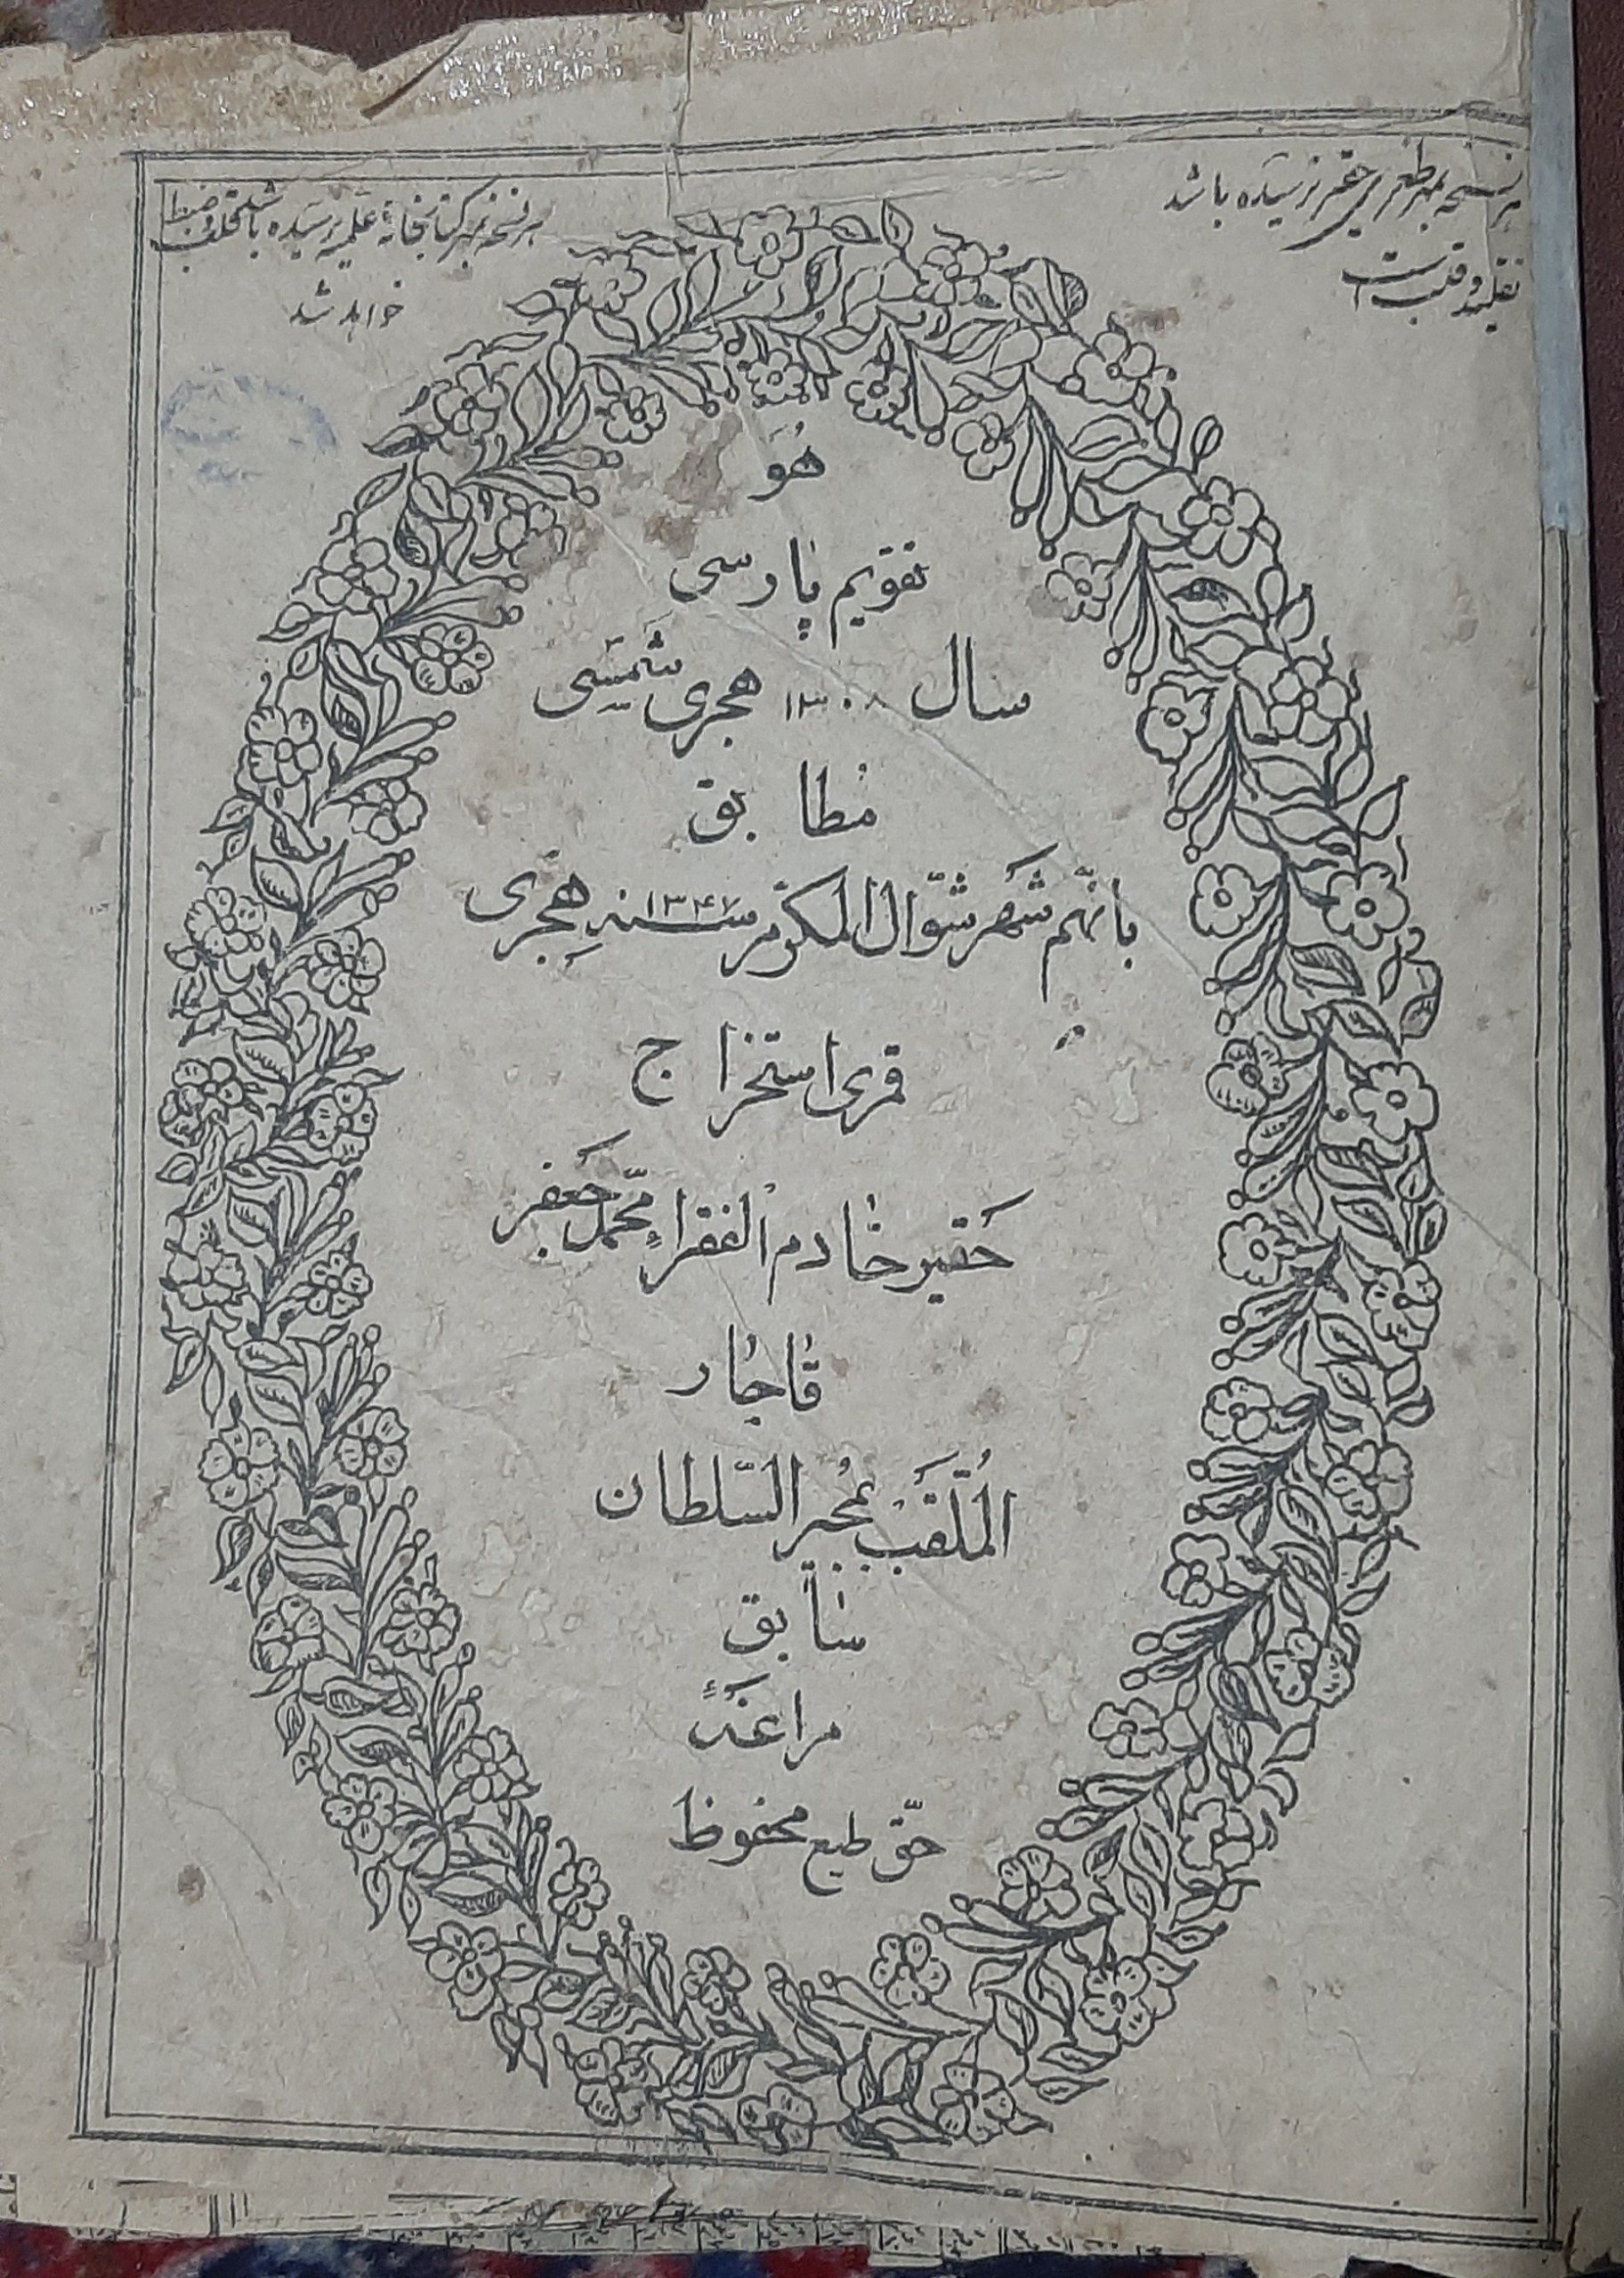 هر نسخه بمهر ظهری حقیر نرسیده باشد
تقلید و قلب است
هر نسخه بمهر کتابخانهٔ علمیه نرسیده باشد تخلف ضبط
خواهد شد
هُوَ
تقویم پارسی
سال ۱۳۰۸ هجری شمسی
مطابق
با نهم شهر شوّال المکرّم سنه ۱۳۴۷ هجری
قمری استخراج
حقیر خادم الفقراء محمّد جعفر
قاجار
المُلَقّب بمجیر السّلطان
سابق
مراغهٔ
حقّ طبع محفوظ